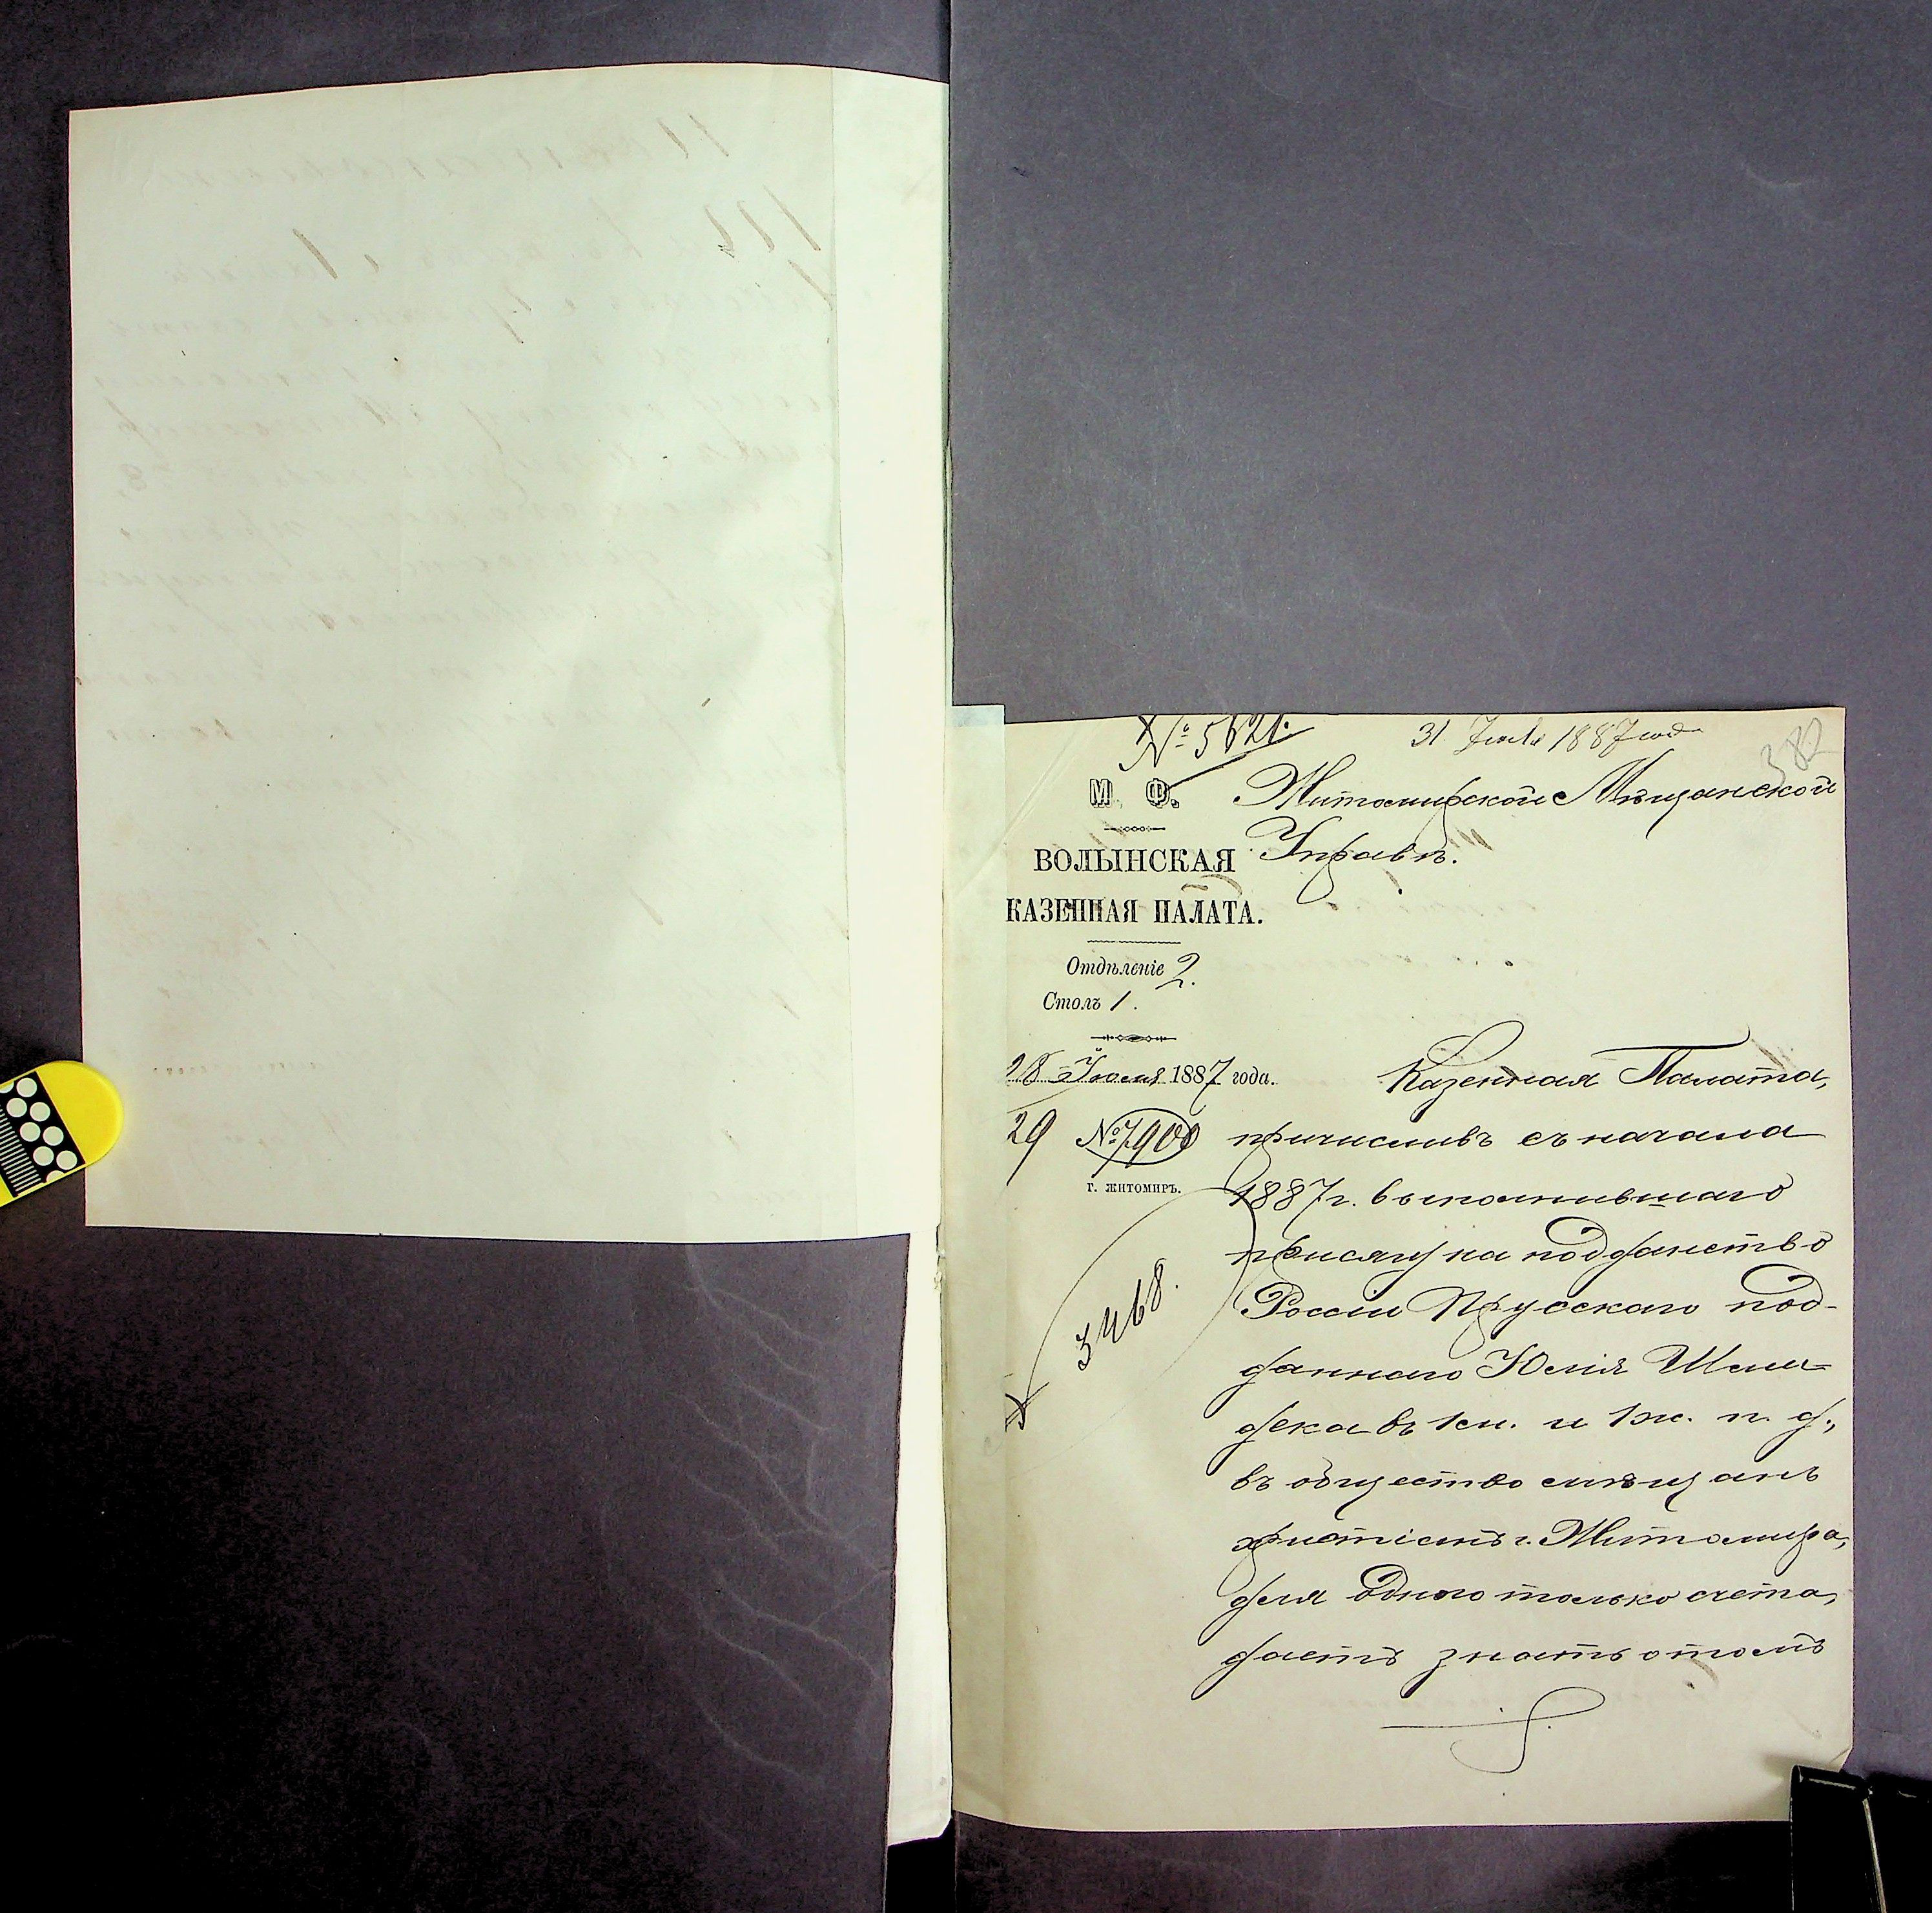 № 5621.
31 Іюля 1887 года
382
М. Ф.
Житомирской Мѣщанской
Управѣ.
ВОЛЫНСКАЯ
КАЗЕННАЯ ПАЛАТА.
Отдѣленіе 2.
Столъ 1.
28 Іюля 1887 года.
29 № 7900
г. ЖИТОМИРЪ.
3468.
Казенная Палата,
причисливъ съ начала
1887 г. выполнившаго
присягу на подданство
Россіи Прусскаго под-
даннаго Юлія
въ 1 м. и 1 ж. п. д.,
въ общество мѣщанъ
христіанъ г. Житомира,
для одного только счета,
даетъ знать о томъ